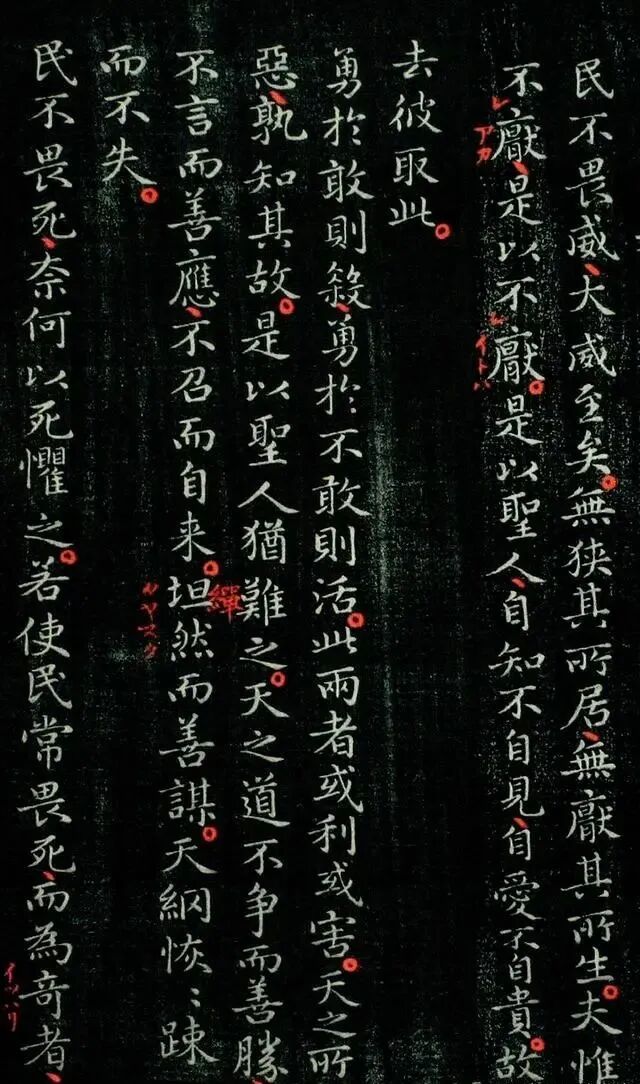 民不畏威、大威至矣。無狹其所居、無厭其所生。夫惟
不厭、是以不厭。是以聖人、自知不自見、自愛不自貴。故
レ
アカ
レ
イトハ
去彼取此。
勇於敢則殺、勇於不敢則活。此兩者或利或害。天之所
惡、孰知其故。是以聖人猶難之。天之道不争而善勝、
不言而善應、不召而自来。坦然而善謀。天網恢〻踈
繟
而不失。
民不畏死、奈何以死懼之。若使民常畏死、而為奇者、